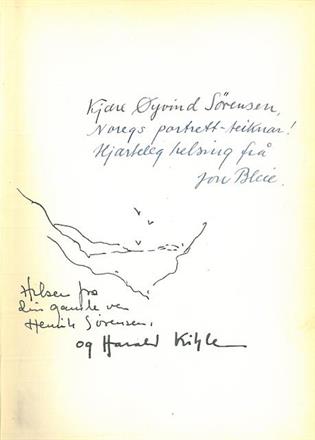 Kjære Øyvind Sørensen,
Noregs portrett-teiknar!
Hjarteleg helsing frå
Jon Bleie.
Hilsen fra
din gamle ven
Henrik Sørensen.
og Harald Kihle